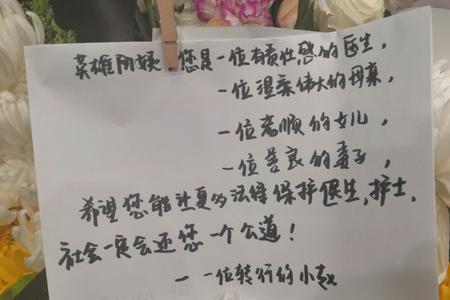 英雄阿姨，您是一位有责任感的医生，
一位温柔伟大的母亲，
一位孝顺的女儿，
一位善良的妻子，
希望您能让更多法律保护医生，护士，
社会一定会还您一个公道！
——一位转行的小赵